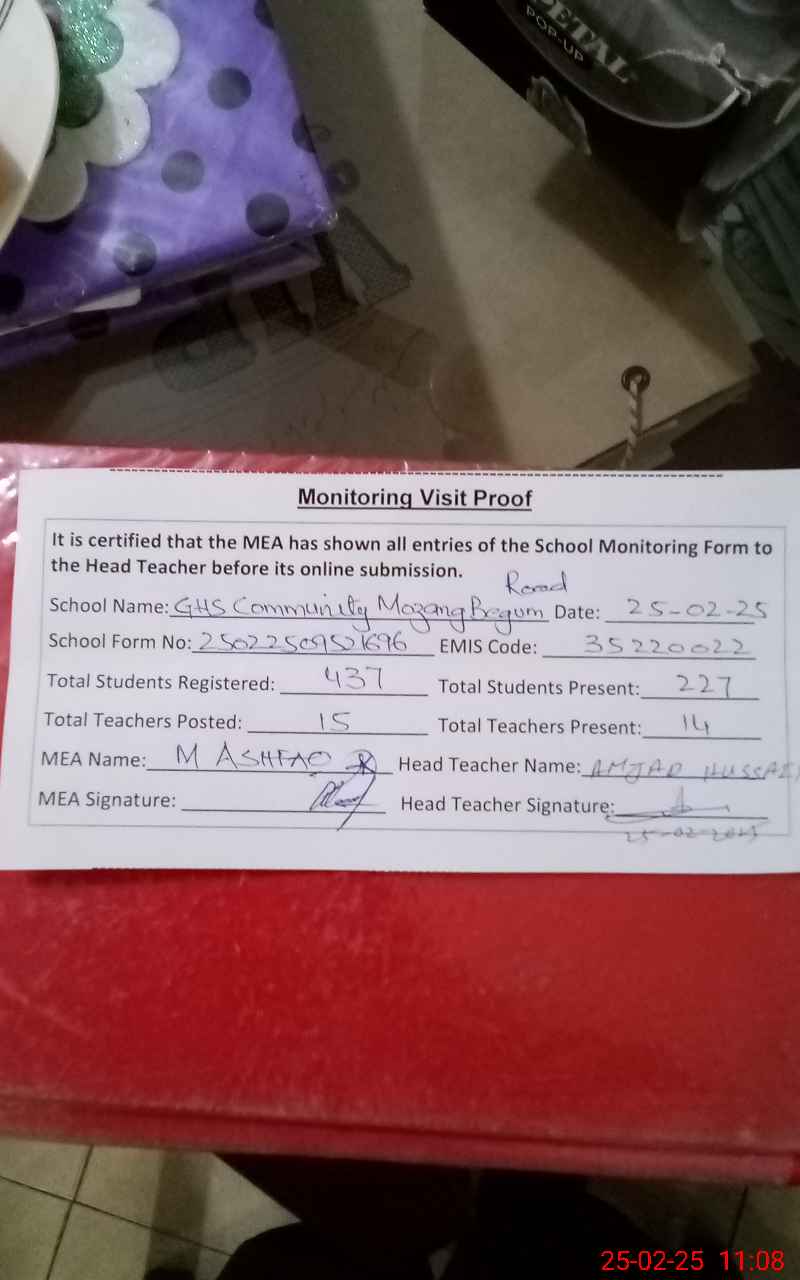 PETAL
POP-UP
Monitoring Visit Proof
It is certified that the MEA has shown all entries of the School Monitoring Form to
the Head Teacher before its online submission.
Road
School Name: GHS Community Mozang Begum Date: 25-02-25
School Form No: EMIS Code: 35220022
Total Students Registered: 437 Total Students Present: 227
Total Teachers Posted: 15 Total Teachers Present: 14
MEA Name: M ASHFAQ Head Teacher Name: AMJAD HUSSAIN
MEA Signature: Head Teacher Signature:
25-02-2025
25-02-25 11:08